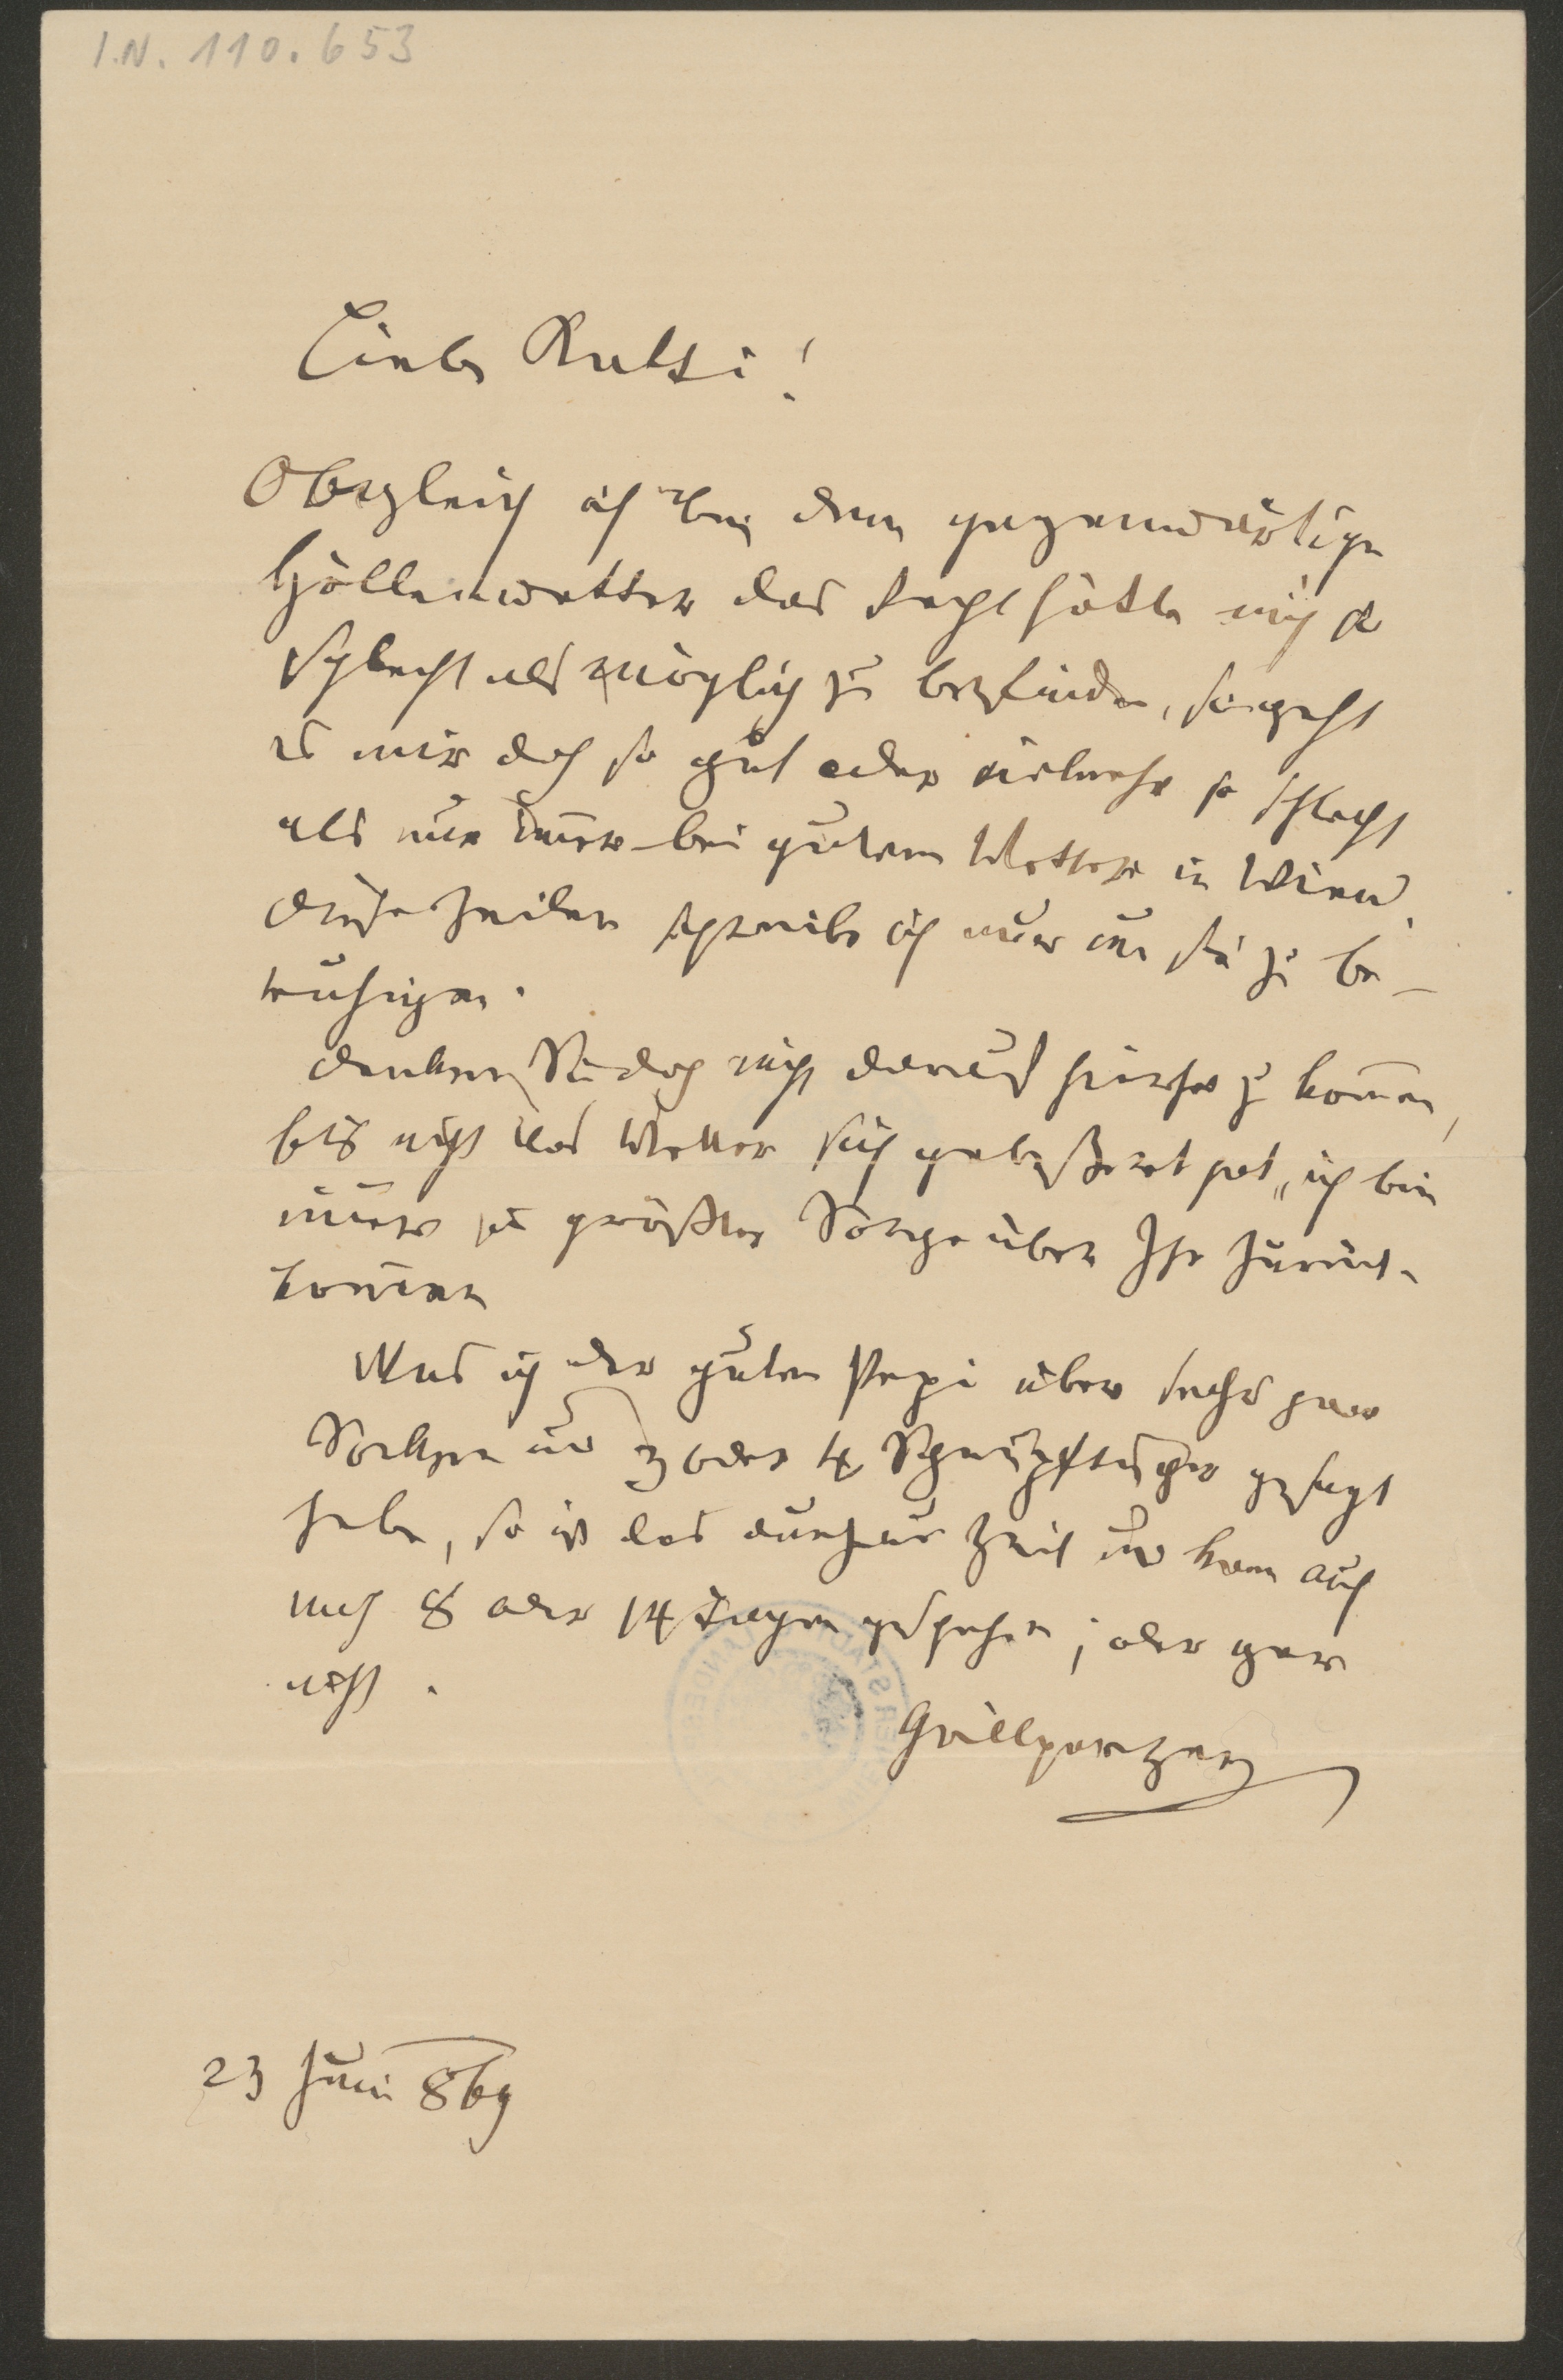 I.N. 110.653
Liebe Kathi!
Obgleich ich bei dem gegenwärtigen
Höllenwetter das Recht hätte mich so
schlecht als möglich zu befinden, so geht
es mir doch so gut oder vielmehr so schlecht
als nur immer bei gutem Wetter in Wien.
Diese Zeilen schreibe ich nur um Sie zu be-
ruhigen.
Denken Sie doch nicht darauf hierher zu kom̄en,
bis nicht das Wetter sich gebeßert hat, ich bin
im̄er in größter Sorge über Ihr Zurück-
kom̄en
Was ich der guten Pepi über sechs paar
Socken und 3 oder 4 Schnupftücher gesagt
habe, so ist das durchaus Zeit und kann auch
nach 8 oder 14 Tagen geschehen; oder gar
nicht.
Grillparzer
23 Juni 869